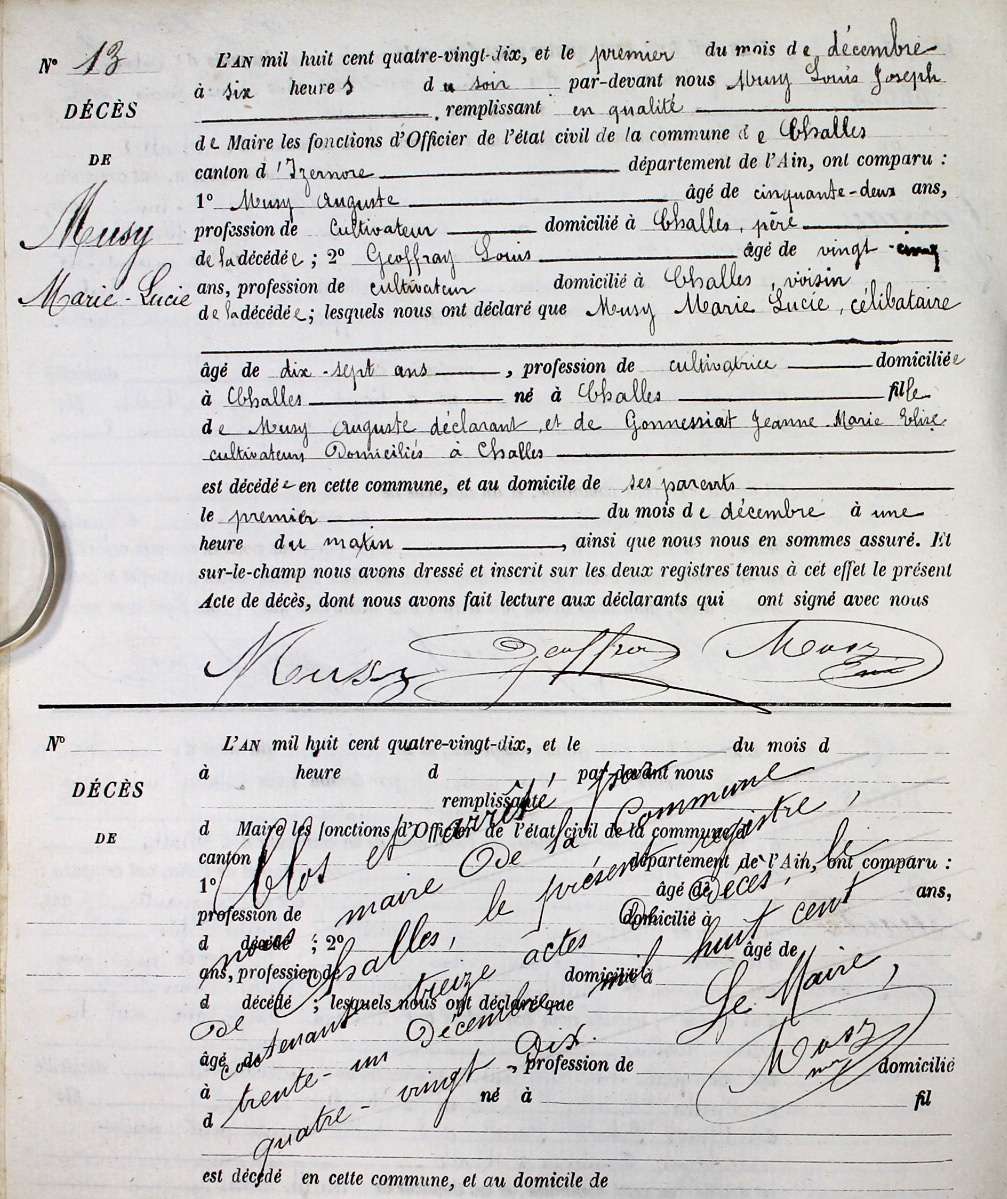 N° 13
DÉCÈS
DE
Musy
Marie-Lucie
L'AN mil huit cent quatre-vingt-dix, et le premier du mois de décembre
à six heures du soir par-devant nous Musy Louis Joseph
remplissant en qualité
de Maire les fonctions d'Officier de l'état civil de la commune de Challes
canton d'Izernore département de l'Ain, ont comparu :
1° Musy Auguste âgé de cinquante-deux ans,
profession de Cultivateur domicilié à Challes, père
de la décédée ; 2° Geoffray Louis âgé de vingt-cinq
ans, profession de cultivateur domicilié à Challes, voisin
de la décédée ; lesquels nous ont déclaré que Musy Marie Lucie, célibataire
âgé de dix-sept ans, profession de cultivatrice domiciliée
à Challes né à Challes fille
de Musy Auguste déclarant et de Gonnessiat Jeanne Marie Elise
cultivateurs Domiciliés à Challes
est décédée en cette commune, et au domicile de ses parents
le premier du mois de décembre à une
heure du matin, ainsi que nous nous en sommes assuré. Et
sur-le-champ nous avons dressé et inscrit sur les deux registres tenus à cet effet le présent
Acte de décès, dont nous avons fait lecture aux déclarants qui ont signé avec nous
Musy Geoffray Musy
N° L'AN mil huit cent quatre-vingt-dix, et le du mois d
DÉCÈS
DE
à heure d par-devant nous
remplissant
d Maire les fonctions d'Officier de l'état civil de la commune d
canton d département de l'Ain, ont comparu :
1° âgé de ans,
profession de domicilié à
d décédé ; 2° âgé de
ans, profession de domicilié à
d décédé ; lesquels nous ont déclaré que
âgé de , profession de domicilié
à né à fil
d
est décédé en cette commune, et au domicile de
Clos et arrêté par
nous maire De la Commune
de Challes, le présent registre,
contenant treize actes De Décès, le
trente-un Décembre mil huit cent
quatre-vingt Dix.
Le Maire,
Musy